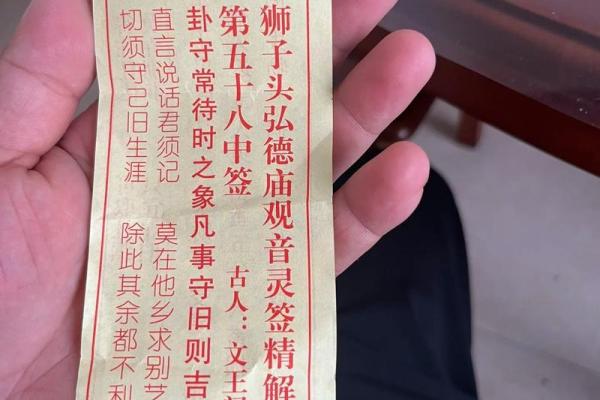 狮子头弘德庙观音灵签精解
第五十八中签 古人：文王
卦守常待时之象凡事守旧则吉
直言说话君须记 莫在他乡求别艺
切须守己旧生涯 除此其余都不利